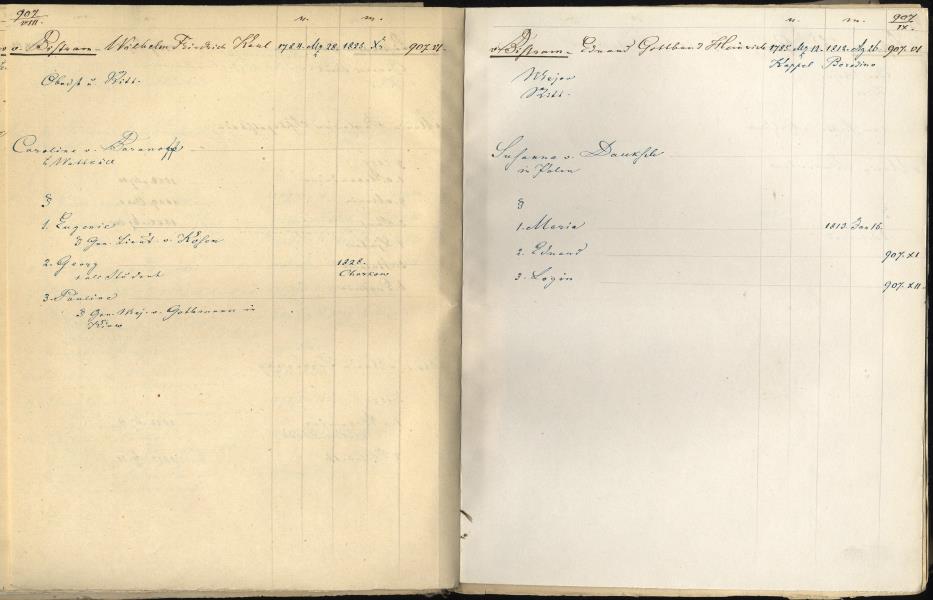 907
VIII.
n. m.
v. Bistram. Wilhelm Friedrich Karl 1784. Mz 28. 1828. X. 907. VI.
Obrist u. Ritt.
Caroline v. Baranoff
§
1. Eugenie
} Gen. Lieut. v.
2. Georg 1828.
als Student Charkow
3. Pauline
} Gen. Maj. v. in
Kiew
907
IX.
n. m.
v. Bistram. Eduard Gotthard Heinrich 1785. Mz 12. 1812. Ag 26. 907. VI
Kappel Borodino
Major
Ritt.
Susanna v.
in Polen
§
1. Maria 1813. Jan 16.
2. Eduard 907. XI
3. Login 907. XII.